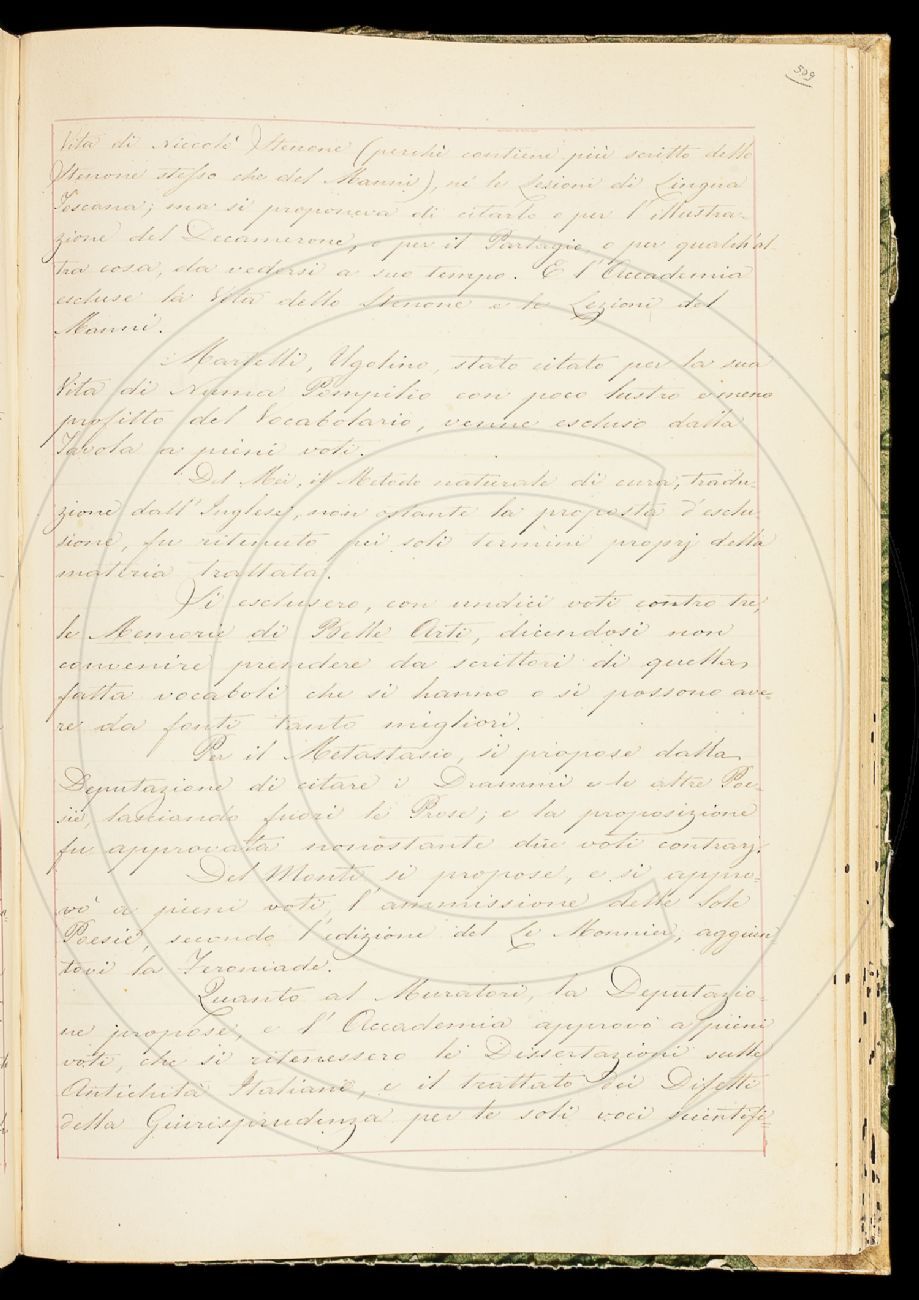 509
Vita di Niccolò Stenone (perchè contiene più scritto dello
Stenone stesso che del Manni), nè le Lezioni di Lingua
Toscana; ma si proponeva di citarlo o per l'illustra-
zione del Decamerone, o per il Partagio, o per qualch'al
tra cosa, da vedersi a suo tempo. E l'Accademia
escluse la Vita dello Stenone e le Lezioni del
Manni.
Martelli, Ugolino, stato citato per la sua
Vita di Numa Pompilio con poco lustro e meno
profitto del Vocabolario, venne escluso dalla
Tavola a pieni voti.
Del Mei, il Metodo naturale di cura, tradu-
zione dall'Inglese, non ostante la proposta d'esclu-
sione, fu ritenuto pei soli termini proprj della
materia trattata.
Si esclusero, con undici voti contro tre,
le Memorie di Belle Arti, dicendosi non
convenire prendere da scrittori di quella
fatta vocaboli che si hanno o si possono ave-
re da fonti tanto migliori.
Per il Metastasio, si propose dalla
Deputazione di citare i Drammi e le altre Poe-
sie, lasciando fuori le Prose; e la proposizione
fu approvata nonostante due voti contrarj.
Del Monti si propose, e si appro-
vò a pieni voti, l'ammissione delle sole
Poesie, secondo l'edizione del Le Monnier, aggiun-
tavi la Feroniade.
Quanto al Muratori, la Deputazio-
ne propose, e l'Accademia approvò a pieni
voti, che si ritenessero le Dissertazioni sulle
Antichità Italiane, e il trattato dei Difetti
della Giurisprudenza per le soli voci scientifi-